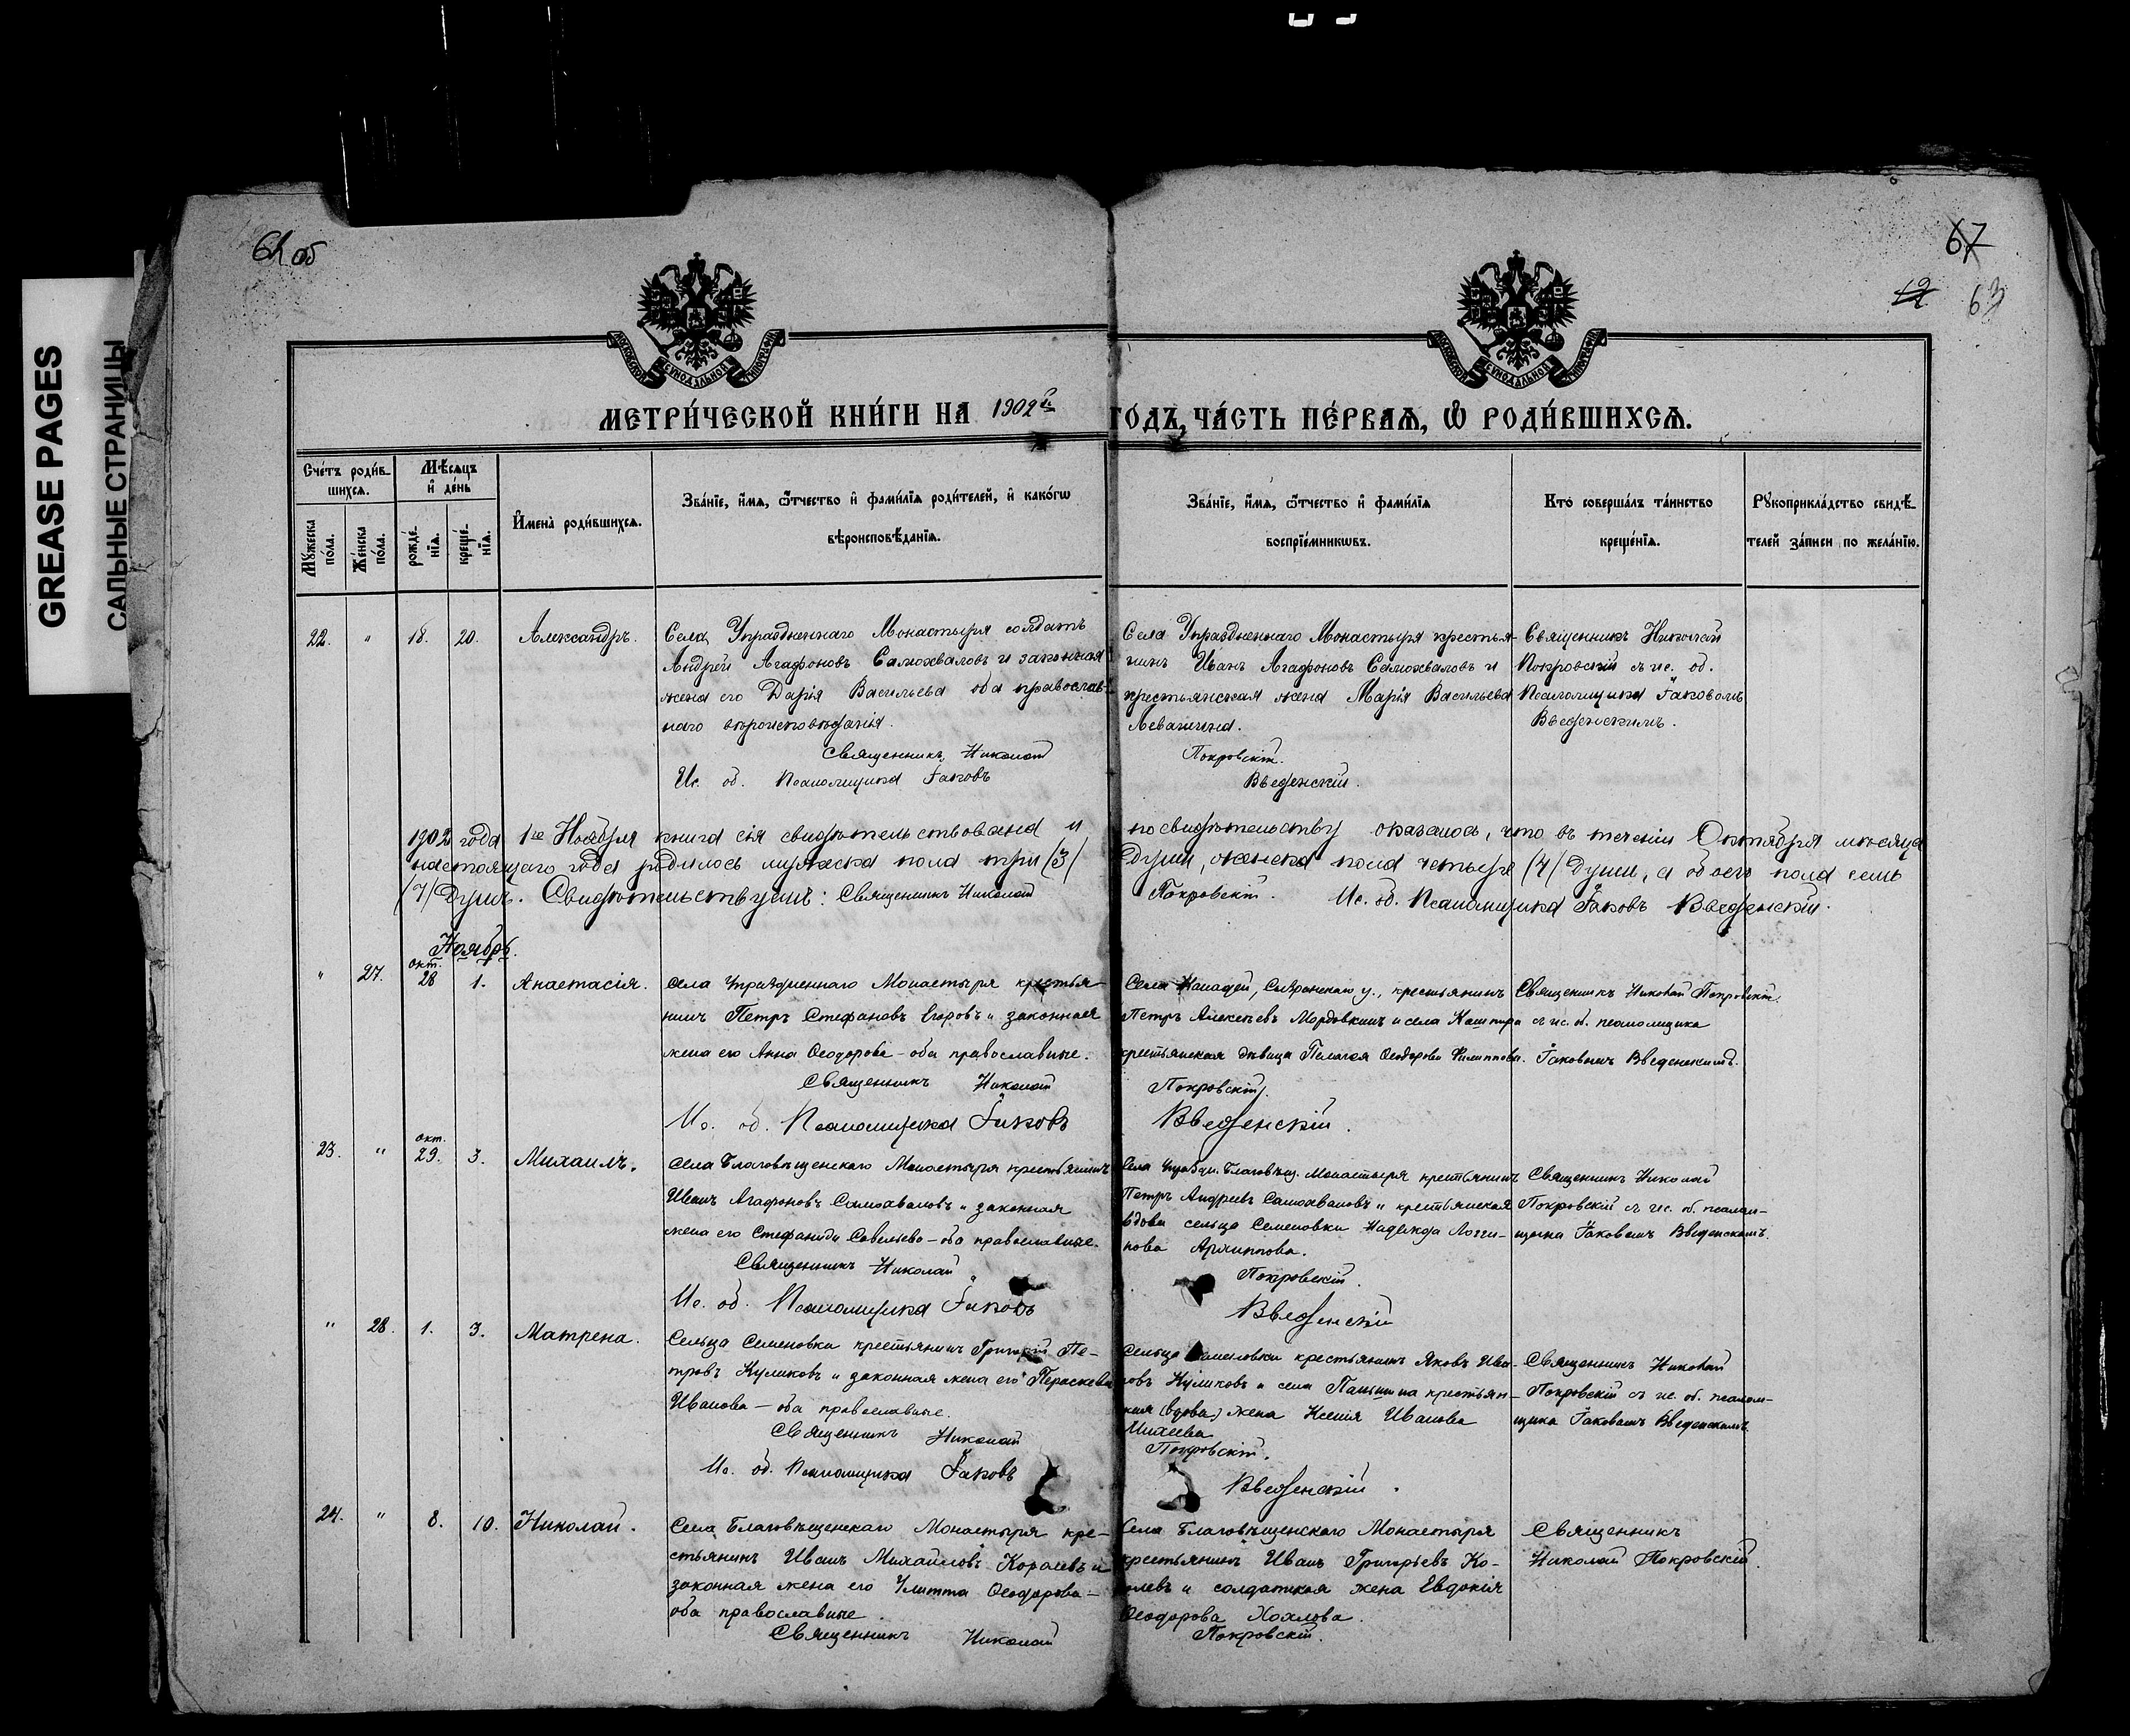 GREASE PAGES
САЛЬНЫЕ СТРАНИЦЫ
об
67
63
МОСКОВСКОЙ СѴНОДАЛЬНОЙ ТИПОГРАФІИ
МОСКОВСКОЙ СѴНОДАЛЬНОЙ ТИПОГРАФІИ
МЕТРИ́ЧЕСКОЙ КНИ́ГИ НА 1902 г. ГО́ДЪ, ЧА́СТЬ ПЕ́РВАѦ, Ѡ҆ РОДИ́ВШИХСѦ.
Сче́тъ роди́в-
шихсѧ.
Мꙋ́жеска по́ла.
Же́нска по́ла.
Мѣ́сѧцъ и҆ де́нь
рожде́-
нїѧ.
креще́-
нїѧ.
И҆мена̀ роди́вшихсѧ.
Зва́нїе, и҆́мѧ, ѻ҆́тчество и҆ фами́лїѧ роди́телей, и҆ како́гѡ
вѣроисповѣ́данїѧ.
Зва́нїе, и҆́мѧ, ѻ҆́тчество и҆ фами́лїѧ
воспрїе́мникѡвъ.
Кто̀ соверша́лъ та́инство
креще́нїѧ.
Рꙋкоприкла́дство свидѣ́-
телей за́писи по жела́нїю.
22. " 18. 20. Александръ.
Села Упраздненнаго Монастыря солдатъ
Андрей Агафоновъ Самохваловъ и законная
жена его Дарія Васильева оба православ-
наго вѣроисповѣданія.
Священникъ Николай
Ис. об. Псаломщика Іаковъ
Села Упраздненнаго Монастыря крестья-
нинъ Иванъ Агафоновъ Самохваловъ и
крестьянская жена Марія Васильева
Покровскій.
Введенскій.
Священникъ Николай
Покровскій съ ис. об.
Псаломщика Іаковомъ
Введенскимъ.
1902 года 1го Ноября книга сія свидѣтельствована и по свидѣтельству оказалось, что въ теченіи Октября мѣсяца
настоящаго года родилось мужеска пола три /3/ души, женска пола четыре /4/ души, а обоего пола семь
/7/ душъ. Свидѣтельствуемъ: Священникъ Николай Покровскій. Ис. об. Псаломщика Іаковъ Введенскій.
Ноябрь.
" 27. окт. 28 1. Анастасія.
Села Упраздненнаго Монастыря крестья-
нинъ Петръ Стефановъ Егоровъ и законная
жена его Анна Ѳеодорова – оба православные.
Священникъ Николай
Ис. об. Псаломщика Іаковъ
Села Канадей, Сызранскаго у., крестьянинъ
Петръ Алексѣевъ Мордовкинъ и села Кашпира
крестьянская дѣвица Пелагея Ѳеодорова Филиппова.
Покровскій.
Введенскій.
Священникъ Николай Покровскій
съ ис. об. псаломщика
Іаковомъ Введенскимъ.
23. " окт. 29. 3. Михаилъ.
Села Благовѣщенскаго Монастыря крестьянинъ
Иванъ Агафоновъ Самохваловъ и законная
жена его Стефанида Савельева – оба православные.
Священникъ Николай
Ис. об. Псаломщика Іаковъ
Села Упраздн. Благовѣщ. Монастыря крестьянинъ
Петръ Андреевъ Самохваловъ и крестьянская
вдова сельца Семеновки Надежда Логги-
нова Архиппова.
Покровскій.
Введенскій
Священникъ Николай
Покровскій съ ис. об. псалом-
щика Іаковомъ Введенскимъ.
" 28. 1. 3. Матрена.
Сельца Семеновки крестьянинъ Григорій Пе-
тровъ Куликовъ и законная жена его Параскева
Иванова – оба православные.
Священникъ Николай
Ис. об. Псаломщика Іаковъ
Сельца Семеновки крестьянинъ Яковъ Ива-
новъ Куликовъ и села Паньшина крестьян-
ская (вдова) жена Ксенія Иванова
Михеева
Покровскій.
Введенскій.
Священникъ Николай
Покровскій съ ис. об. псалом-
щика Іаковомъ Введенскимъ
24. " 8. 10. Николай.
Села Благовѣщенскаго Монастыря кре-
стьянинъ Иванъ Михайловъ Королевъ и
законная жена его Улитта Ѳеодорова –
оба православные.
Священникъ Николай
Села Благовѣщенскаго Монастыря
крестьянинъ Иванъ Григорьевъ Ко-
ролевъ и солдатская жена Евдокія
Ѳеодорова Хохлова.
Покровскій.
Священникъ
Николай Покровскій.